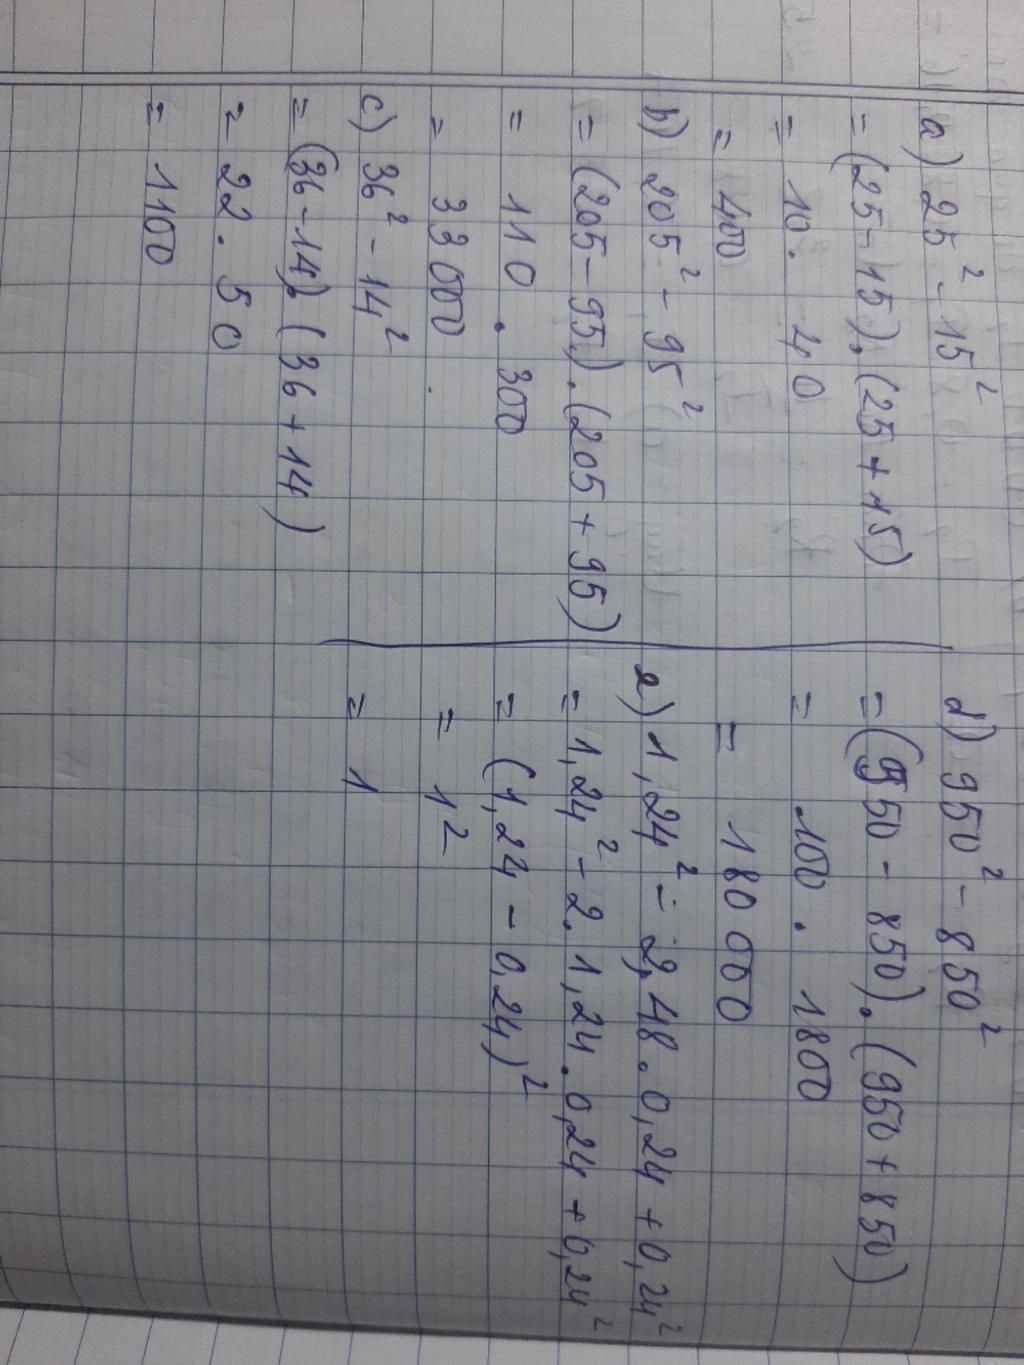 a) 25² - 15²
= (25 - 15).(25 + 15)
= 10 . 40
= 400
b) 205² - 95²
= (205 - 95).(205 + 95)
= 110 . 300
= 33 000
c) 36² - 14²
= (36 - 14).(36 + 14)
= 22 . 50
= 1100
d) 950² - 850²
= (950 - 850).(950 + 850)
= 100 . 1800
= 180 000
e) 1,24² - 2,48 . 0,24 + 0,24²
= 1,24² - 2. 1,24 . 0,24 + 0,24²
= (1,24 - 0,24)²
= 1²
= 1